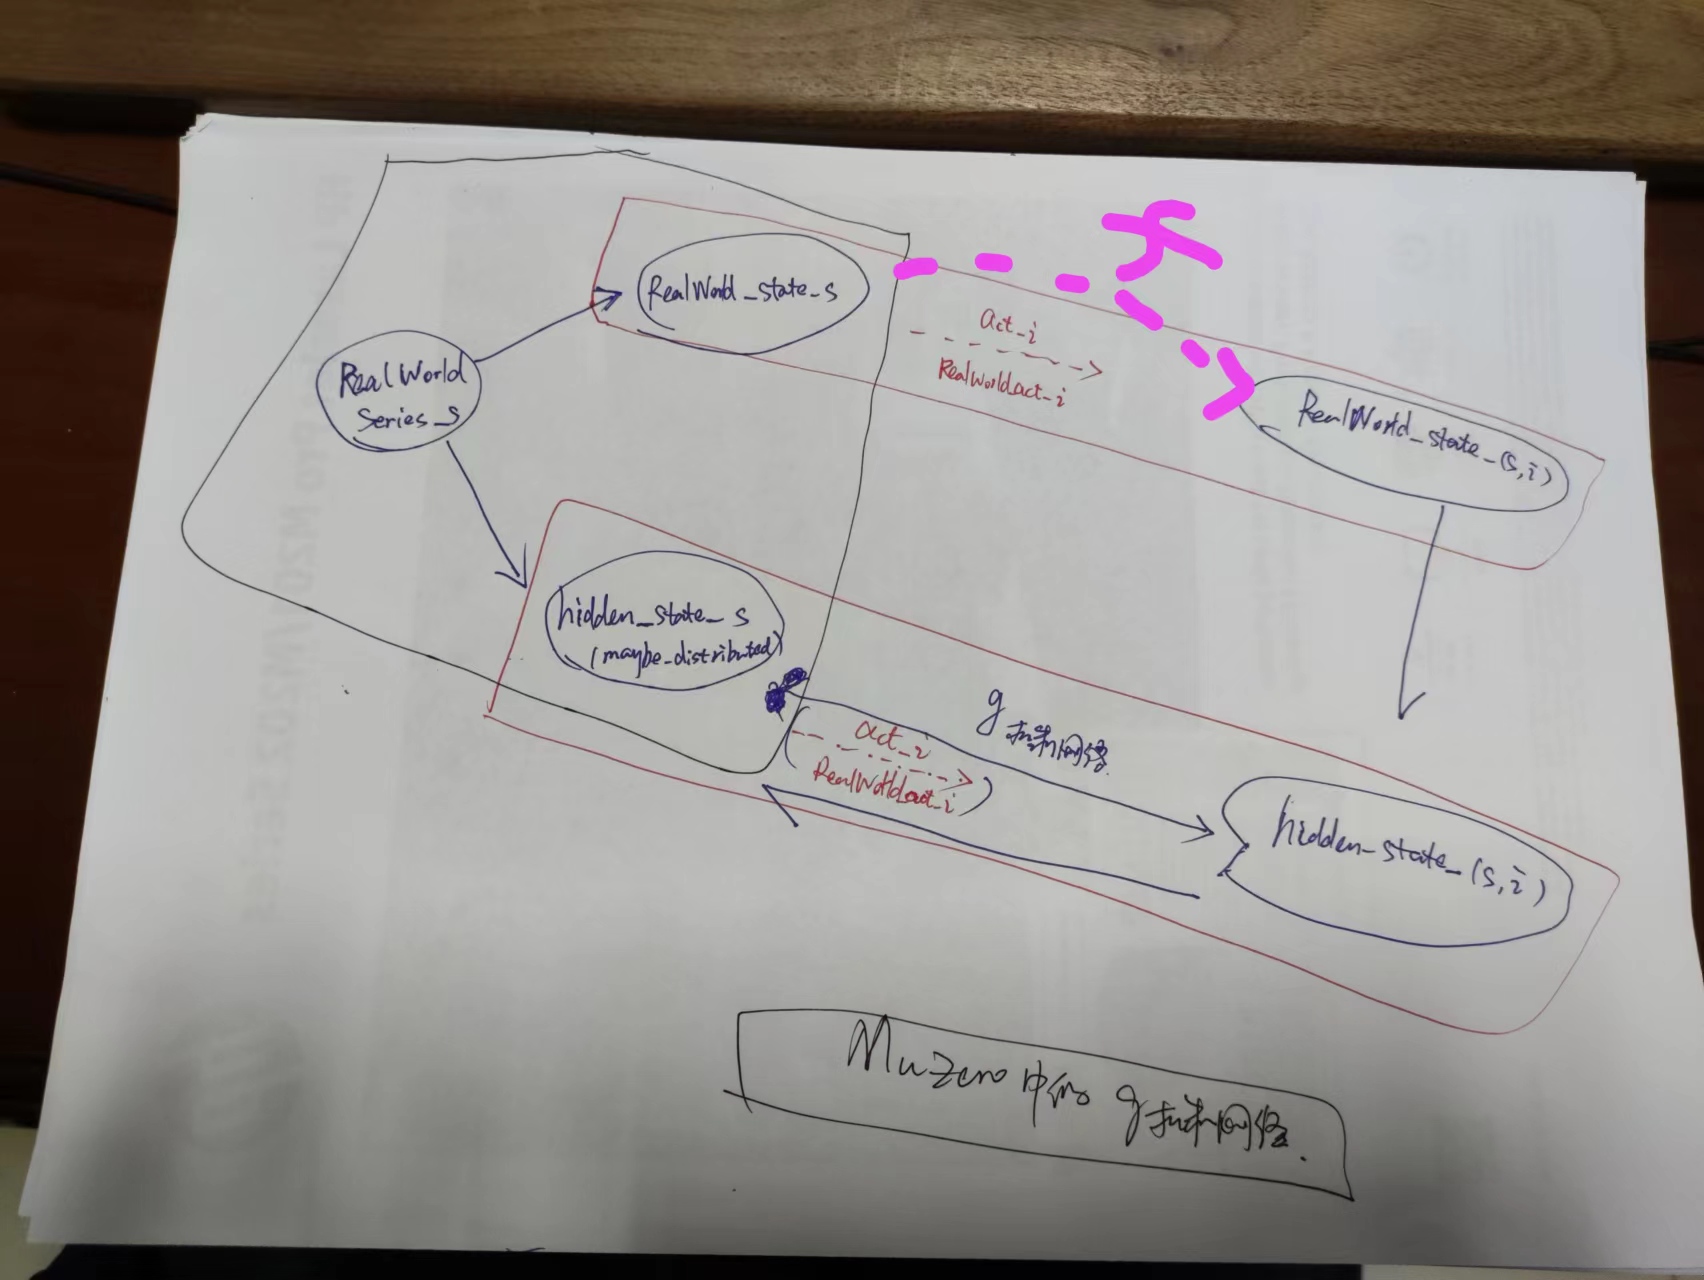 RealWorld
Series_s
RealWorld_state_s
act_i
RealWorld_act_i
RealWorld_state_(s,i)
hidden_state_s
(maybe_distributed)
g
网络
act_i
RealWorld_act_i
hidden_state_(s,i)
MuZero中的 g 网络.